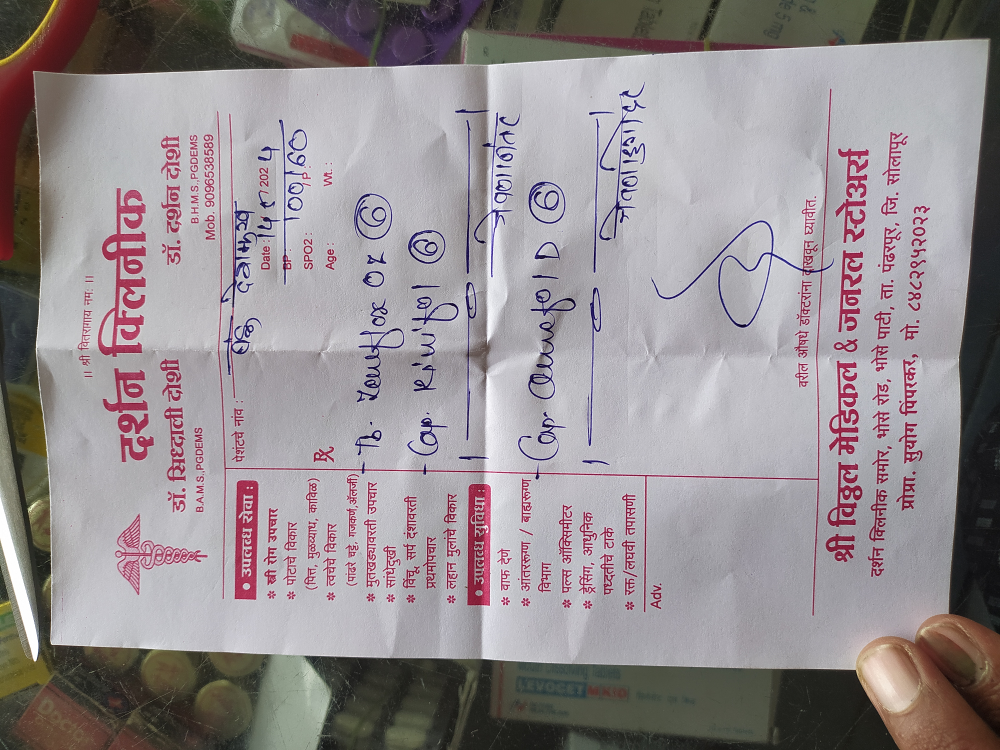 || श्री वितरागाय नमः ||
दर्शन क्लिनीक
डॉ. सिध्दाली दोशी
B.A.M.S.,PGDEMS
डॉ. दर्शन दोशी
B.H.M.S.,PGDEMS
Mob. 9096538589
पेशंटचे नांव :
Date : 2024
BP : 100/60
SPO2 : P :
Age : Wt. :
• उपलब्ध सेवा :
* स्त्री रोग उपचार
* पोटाचे विकार
(पित्त, मुळव्याध, काविळ)
* त्वचेचे विकार
(पांढरे चट्टे, गजकर्ण,ॲलर्जी)
* मुतखड्यावरती उपचार
* सांधेदुखी
* विंचू, सर्प दंशावरती
प्रथमोपचार
* लहान मुलांचे विकार
• उपलब्ध सुविधा :
* वाफ देणे
* आंतररुग्ण / बाह्यरूग्ण
विभाग
* पल्स ऑक्सिमीटर
* ड्रेसिंग, आधुनिक
पध्दतीचे टाके
* रक्त/लघवी तपासणी
Adv.
℞
- Tb. OZ 6
- Cap. 6
1 — 0 — 1 जेवणानंतर
- Cap. D 6
1 — 0 — 1
वरील औषधे डॉक्टरांना दाखवून घ्यावीत.
श्री विठ्ठल मेडिकल & जनरल स्टोअर्स
दर्शन क्लिनीक समोर, भोसे रोड, भोसे पाटी, ता. पंढरपूर, जि. सोलापूर
प्रोप्रा. सुयोग पिंपरकर, मो. ८४८२९५२०२३
LEVOCET